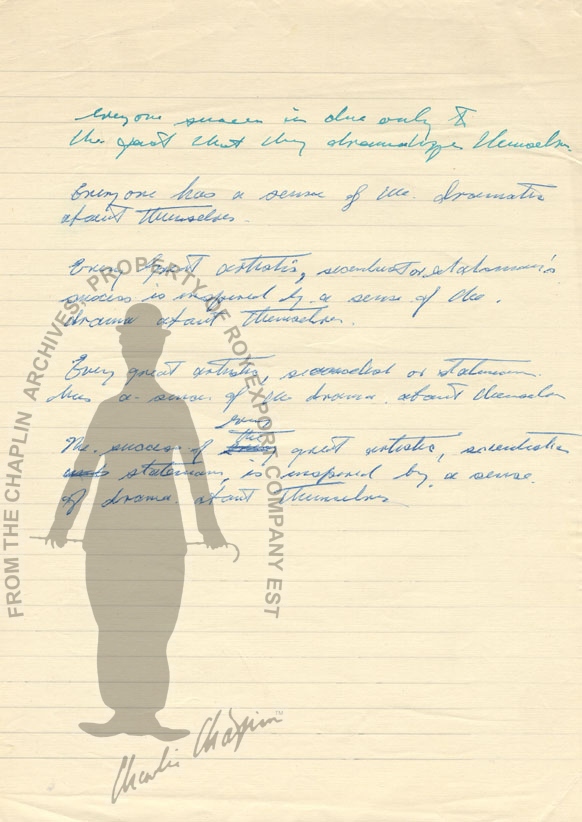 everyone succes is due only to
the fact that they dramatize themselves.
Everyone has a sense of the dramatic
about themselves.
Every great artistis, scientist or statesman's
success is inspired by a sense of the
drama about themselves.
Every great artistis, scientist or statesman
has a sense of the drama about themselves
every
The success of the great artistic, scientistic
statesman, is inspired by a sense
of drama about themselves
FROM THE CHAPLIN ARCHIVES, PROPERTY OF ROY EXPORT COMPANY EST
Charlie Chaplin™